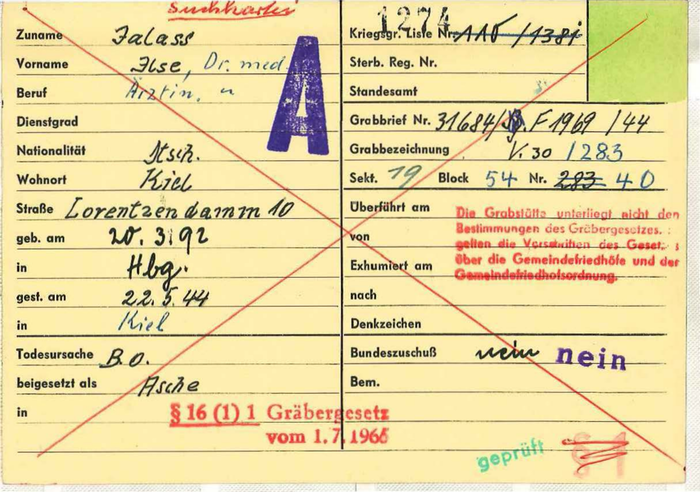 Suchkartei
1274
Zuname Jalass
Vorname Ilse, Dr. med
Beruf Ärztin.
Dienstgrad
Nationalität Dtsch.
Wohnort Kiel
Straße Lorentzendamm 10
geb. am 20. 3. 92
in Hbg.
gest. am 22. 5. 44
in Kiel
Todesursache B.O.
beigesetzt als Asche
in
§ 16 (1) 1 Gräbergesetz
vom 1. 7. 1965
A
Kriegsgr. Liste Nr. 115/1381
Sterb. Reg. Nr.
Standesamt
Grabbrief Nr. 31684/ F 1969 /44
Grabbezeichnung V. 30 /283
Sekt. 19 Block 54 Nr. 283 40
Überführt am
von
Exhumiert am
nach
Denkzeichen
Die Grabstätte unterliegt nicht den
Bestimmungen des Gräbergesetzes.
gelten die Vorschriften des Geset
über die Gemeindefriedhöfe und der
Gemeindefriedhofsordnung.
Bundeszuschuß nein nein
Bem.
geprüft § 1